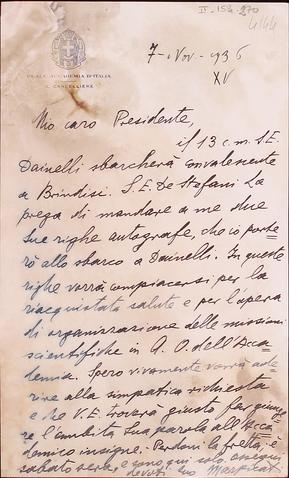 II-154-270
4144
REALE ACCADEMIA D'ITALIA
IL CANCELLIERE
7- Nov - 1936
XV
Mio caro Presidente,
il 13 c.m. S.E.
Dainelli sbarcherà convalescente
a Brindisi. S.E. De Stefani La
prega di mandare a me due
sue righe autografe, che io porte=
rò allo sbarco a Dainelli. In queste
righe vorrà compiacersi per la
riacquistata salute e per l'opera
di organizzazione delle missioni
scientifiche in A. O. dell'Acca
demia. Spero vivamente vorrà ade
rire alla simpatica richiesta
e che V.E. troverà giusto far giunge
re l'ambita Sua parola all'Acca
demico insigne. Perdoni la fretta, è
sabato sera, e sono qui solo. ossequi
devoti Suo Marpicati